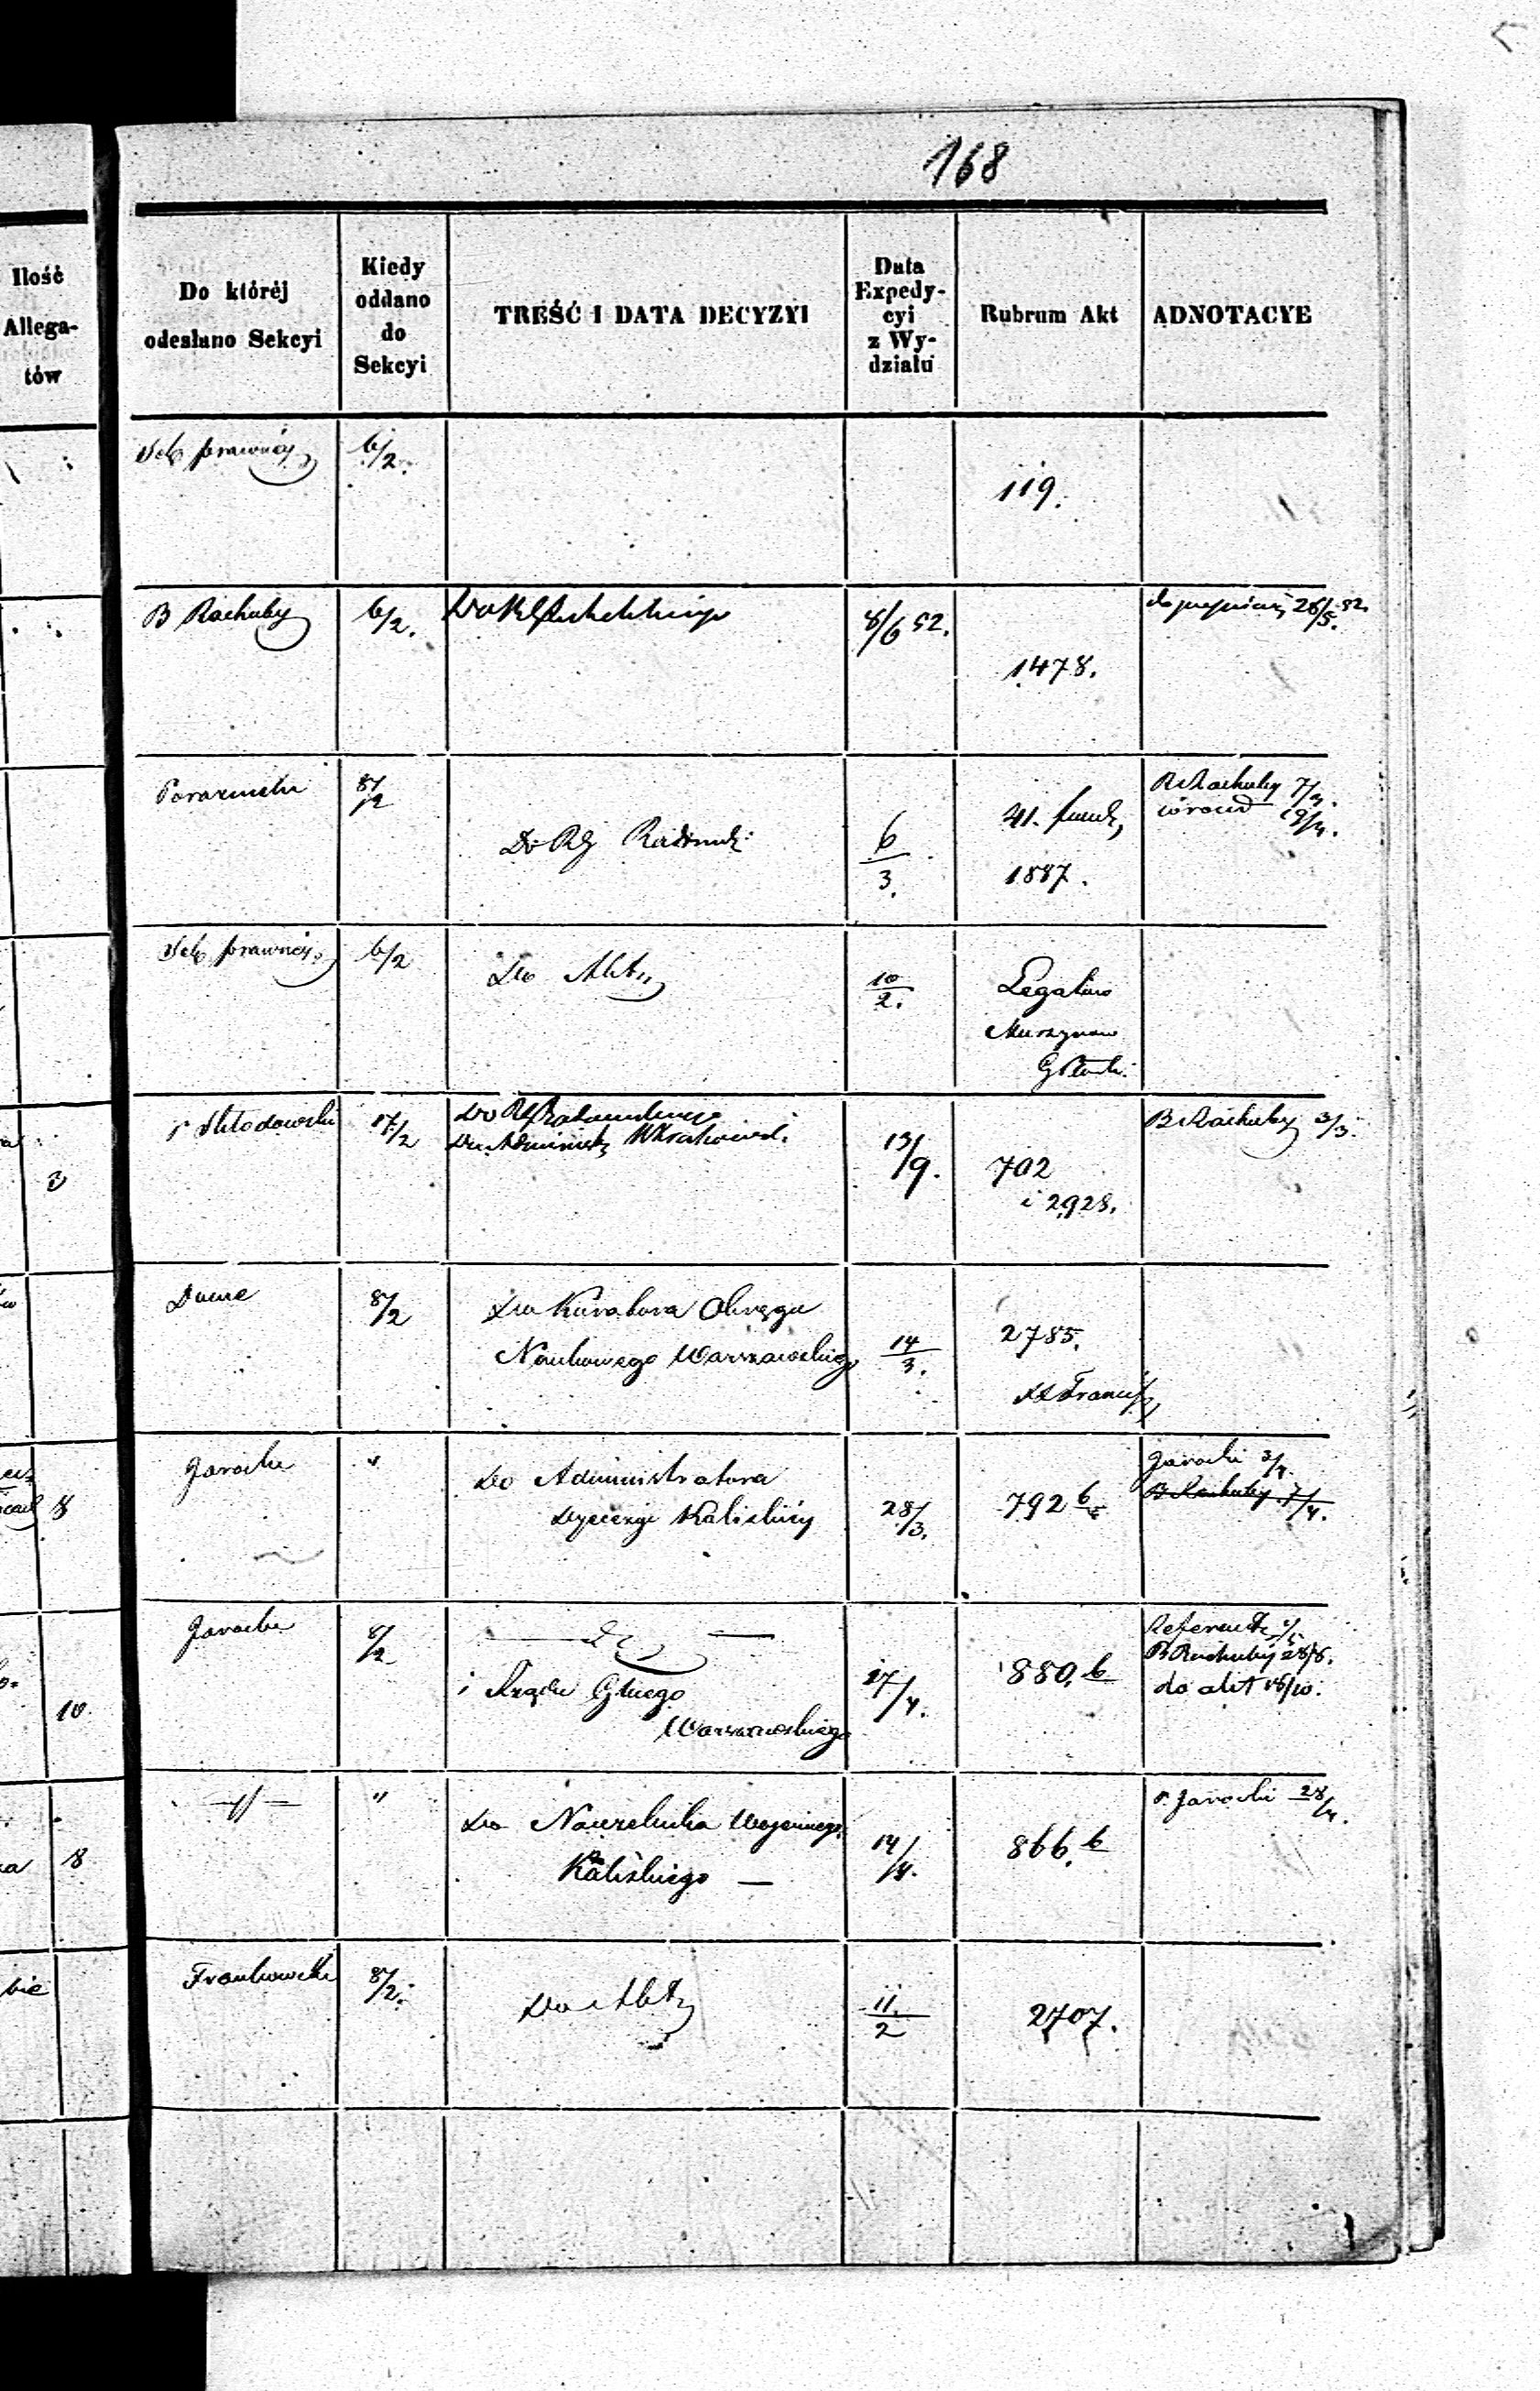 168
Ilość
Allega-
tów
Do któréj
odesłano Sekcyi
Kiedy
oddano
do
Sekcyi
TREŚĆ I DATA DECYZYI
Data
Expedy-
cyi
z Wy-
działu
Rubrum Akt
ADNOTACYE
Sek prawnéj
6/2.
119.
B Rachuby
6/2.
8/6 52.
1478.
26/5 52.
8/2
Do RG Radomsk:
6/3.
41.
1887.
B Rachuby 7/3.
wrócił 19/4.
Sek prawnéj
6/2
Do Akt
10/2.
Legatum
3
P Skłodowski
17/2
Do RG Radomskiego
Do Administr
13/9.
702
i 2928.
B Rachuby 3/3.
8/2
Do Kuratora Okręgu
Naukowego Warszawskiego
14/3.
2785.
XX Francisz
8
Jarocki
"
Do Administratora
Dyecezyi Kaliskiéj
28/3.
792 b
Jarocki 3/4.
B Rachuby 7/4.
10
Jarocki
8/2
i Rządu Głnego
Warszawskiego
27/4.
880. b
Referent
B Rachuby 28/8.
do akt 16/10.
8
—"—
"
Do Naczelnika Wojennego
Kaliskiego —
14/4.
866. b
P. Jarocki 28/4.
bie
Frankowski
8/2.
Do Akt
11/2
2707.